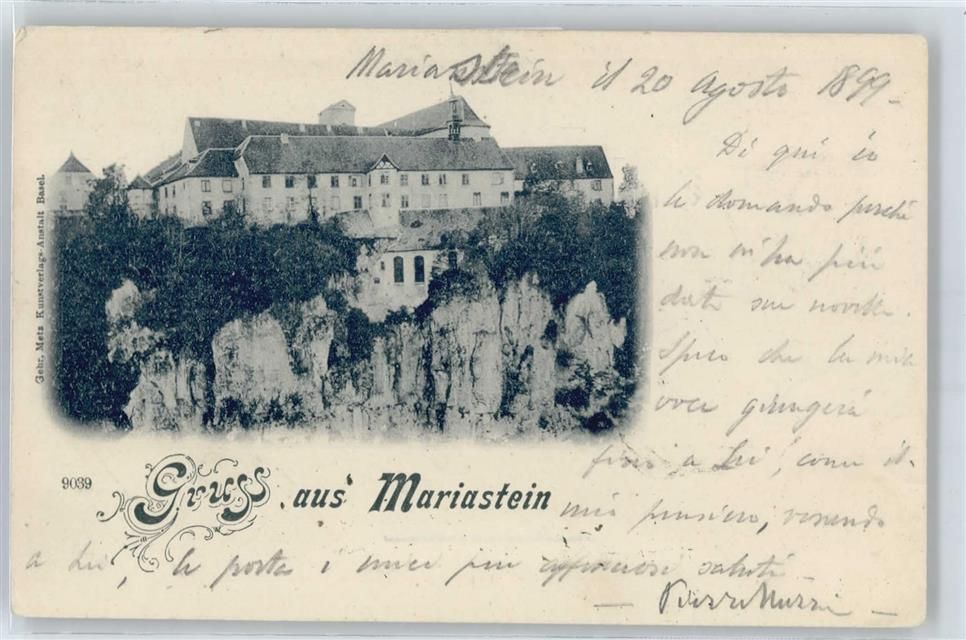 Mariastein il 20 Agosto 1899 -
Di qui io
le domando perché
non m'ha più
date sue novelle.
Spero che la mia
voce giungerà
fino a Lei, come il
mio pensiero, venendo
a Lei, le porta i miei più affettuosi saluti
Gebr. Metz Kunstverlags-Anstalt Basel.
9039
Gruss aus Mariastein